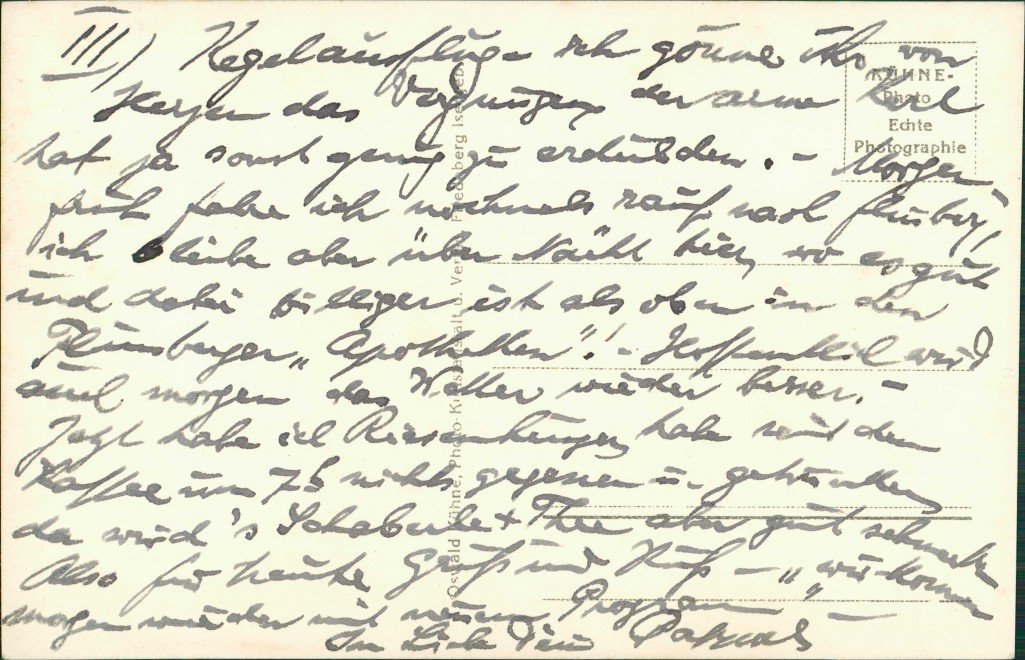 III) Kegelausflug - ich gönne ihr von
Herzen das Vergnügen, der arme Kerl
hat ja sonst genug zu erdulden. - Morgen
früh fahre ich nochmals rauf nach
ich bleibe aber über Nacht hier, wo es gut
und dabei billiger ist als oben in den
"Apotheken"! - Hoffentlich wird
auch morgen das Wetter wieder besser. -
Jetzt habe ich Riesenhunger, habe seit dem
Kaffee um 7h nichts gegessen u. getrunken
da wird's + Thee aber gut schmecken
Also für heute Gruß und Kuß - "wir kommen
morgen wieder mit neuem Program" -
In Liebe Dein
KÜHNE-
Photo
Echte
Photographie
Oswald Kühne, Photo-Kunstanstalt u. Verlag, Friedeberg Isergeb.